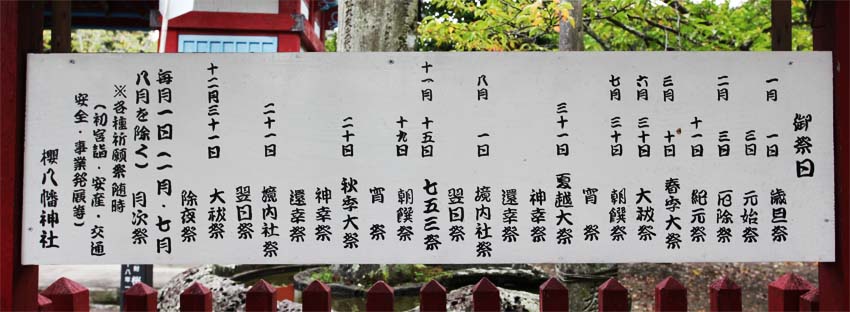 御祭日
一月 一日 歳旦祭
三日 元始祭
二月 三日 厄除祭
十一日 紀元祭
三月 十日 春季大祭
六月 三十日 大祓祭
七月 三十日 朝饌祭
宵祭
三十一日 夏越大祭
神幸祭
還幸祭
八月 一日 境内社祭
翌日祭
十一月 十五日 七五三祭
十九日 朝饌祭
宵祭
二十日 秋季大祭
神幸祭
還幸祭
二十一日 境内社祭
翌日祭
十二月三十一日 大祓祭
除夜祭
毎月一日(一月・七月
八月を除く) 月次祭
※各種祈願祭随時
(初宮詣・安産・交通
安全・事業発展等)
櫻八幡神社